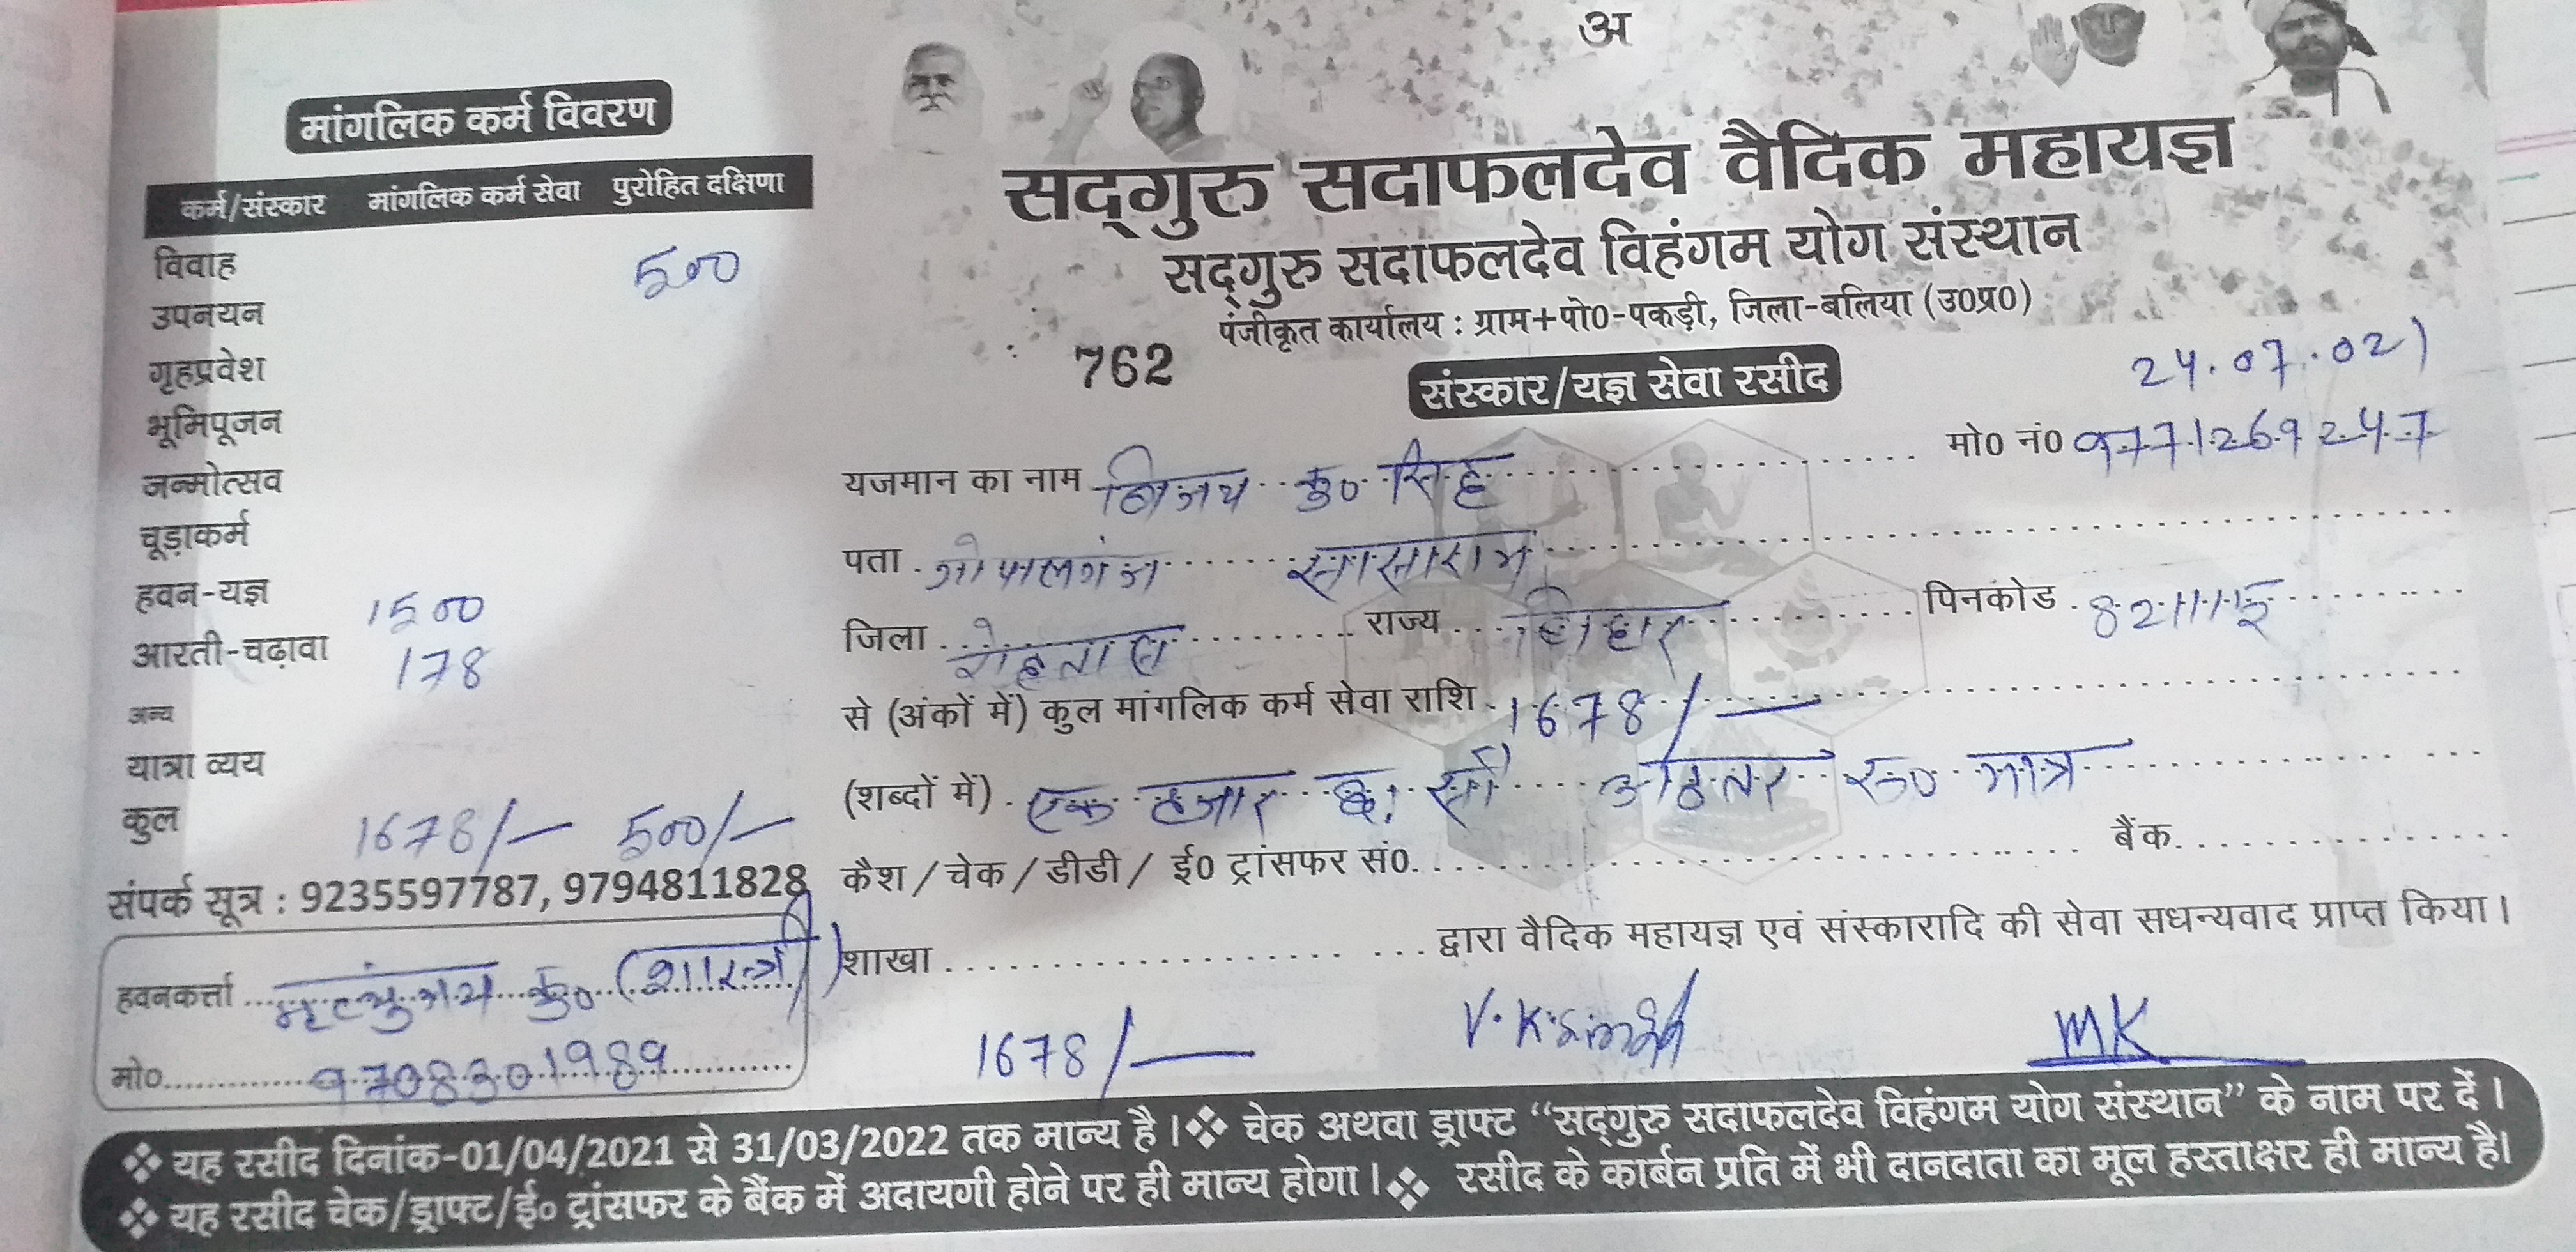 अ
मांगलिक कर्म विवरण
कर्म/संस्कार मांगलिक कर्म सेवा पुरोहित दक्षिणा
विवाह 500
उपनयन
गृहप्रवेश
भूमिपूजन
जन्मोत्सव
चूड़ाकर्म
हवन-यज्ञ 1500
आरती-चढ़ावा 178
अन्य
यात्रा व्यय
कुल 1678/- 500/-
संपर्क सूत्र : 9235597787, 9794811828
हवनकर्त्ता मृत्युंजय कु० (शास्त्री)
मो० 9708301989
सद्गुरु सदाफलदेव वैदिक महायज्ञ
सद्गुरु सदाफलदेव विहंगम योग संस्थान
पंजीकृत कार्यालय : ग्राम+पो0-पकड़ी, जिला-बलिया (उ0प्र0)
762 संस्कार/यज्ञ सेवा रसीद 24.07.021
यजमान का नाम विजय कु० सिंह मो0 नं0 9771269247
पता गोपालगंज सासाराम
जिला रोहतास राज्य बिहार पिनकोड 821115
से (अंकों में) कुल मांगलिक कर्म सेवा राशि 1678/-
(शब्दों में) एक हजार छः सौ अठहतर रु० मात्र
कैश/चेक/डीडी/ ई0 ट्रांसफर सं0 बैंक
शाखा द्वारा वैदिक महायज्ञ एवं संस्कारादि की सेवा सधन्यवाद प्राप्त किया।
1678/- V.K.Singh MK
❖ यह रसीद दिनांक-01/04/2021 से 31/03/2022 तक मान्य है।❖ चेक अथवा ड्राफ्ट “सद्गुरु सदाफलदेव विहंगम योग संस्थान” के नाम पर दें।
❖ यह रसीद चेक/ड्राफ्ट/ई० ट्रांसफर के बैंक में अदायगी होने पर ही मान्य होगा।❖ रसीद के कार्बन प्रति में भी दानदाता का मूल हस्ताक्षर ही मान्य है।